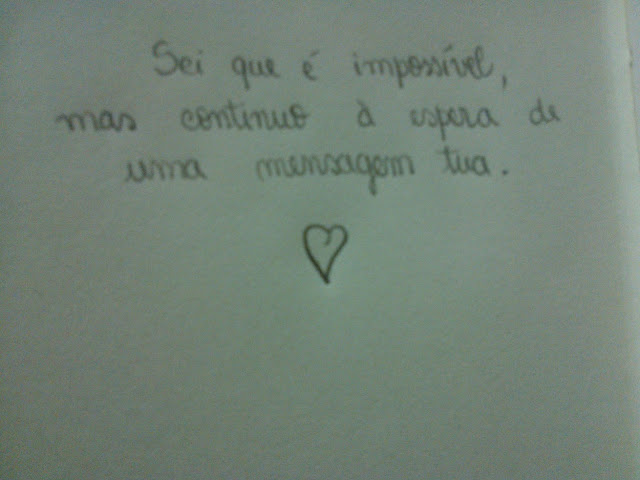 Sei que é impossível,
mas continuo à espera de
uma mensagem tua.